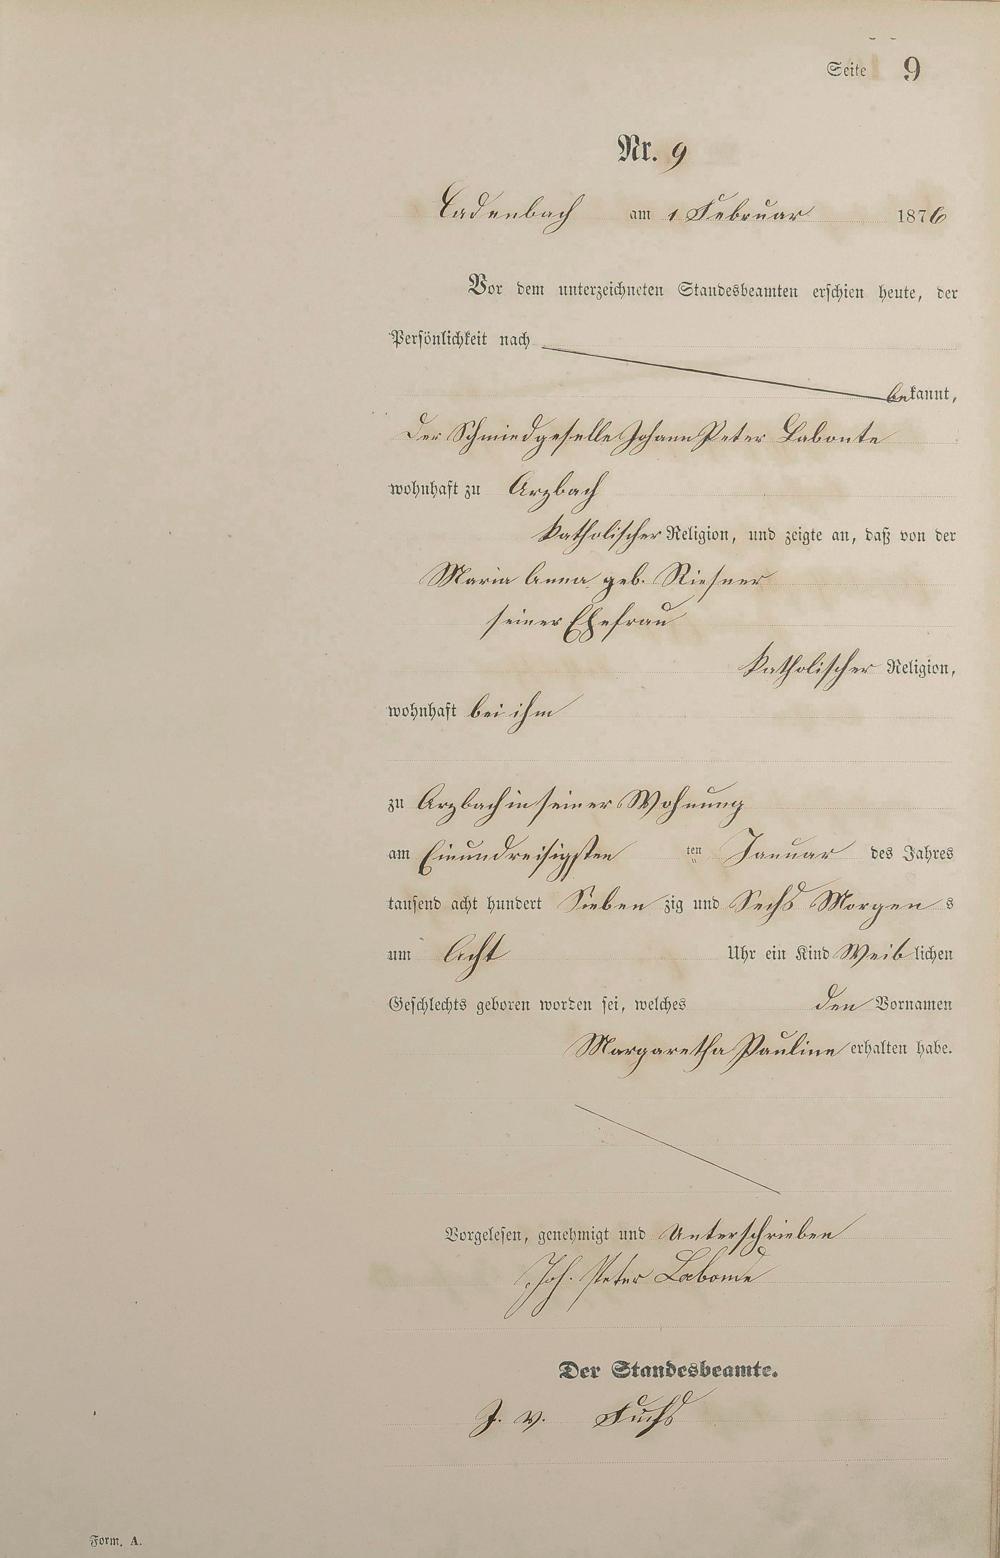 Seite 9
Nr. 9
Cadenbach am 1 Februar 1876
Vor dem unterzeichneten Standesbeamten erschien heute, der
Persönlichkeit nach
bekannt,
Der Schmiedgeselle Johann Peter Labonte
wohnhaft zu Arzbach
katholischer Religion, und zeigte an, daß von der
Maria Anna geb. Riesner
seiner Ehefrau
katholischer Religion,
wohnhaft bei ihm
zu Arzbach in seiner Wohnung
am Einundreisigsten ten Januar des Jahres
tausend acht hundert Sieben zig und Sechs Morgen s
um Acht Uhr ein Kind Weiblichen
Geschlechts geboren worden sei, welches den Vornamen
Margaretha Pauline erhalten habe.
Vorgelesen, genehmigt und Unterschrieben
Joh. Peter Labonde
Der Standesbeamte.
J. v. Fuchs
Form. A.